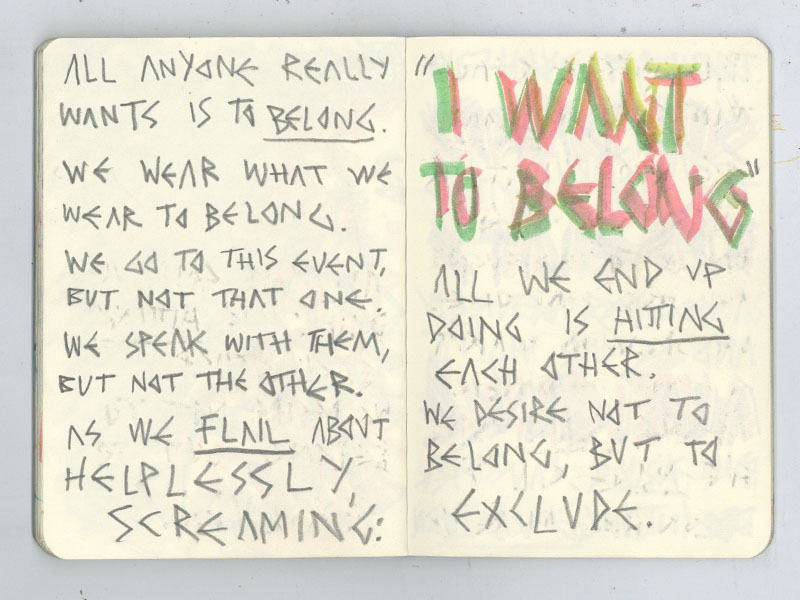 ALL ANYONE REALLY
WANTS IS TO BELONG.
WE WEAR WHAT WE
WEAR TO BELONG.
WE GO TO THIS EVENT,
BUT NOT THAT ONE.
WE SPEAK WITH THEM,
BUT NOT THE OTHER.
AS WE FLAIL ABOUT
HELPLESSLY,
SCREAMING:
"I WANT
TO BELONG"
ALL WE END UP
DOING IS HITTING
EACH OTHER.
WE DESIRE NOT TO
BELONG, BUT TO
EXCLUDE.